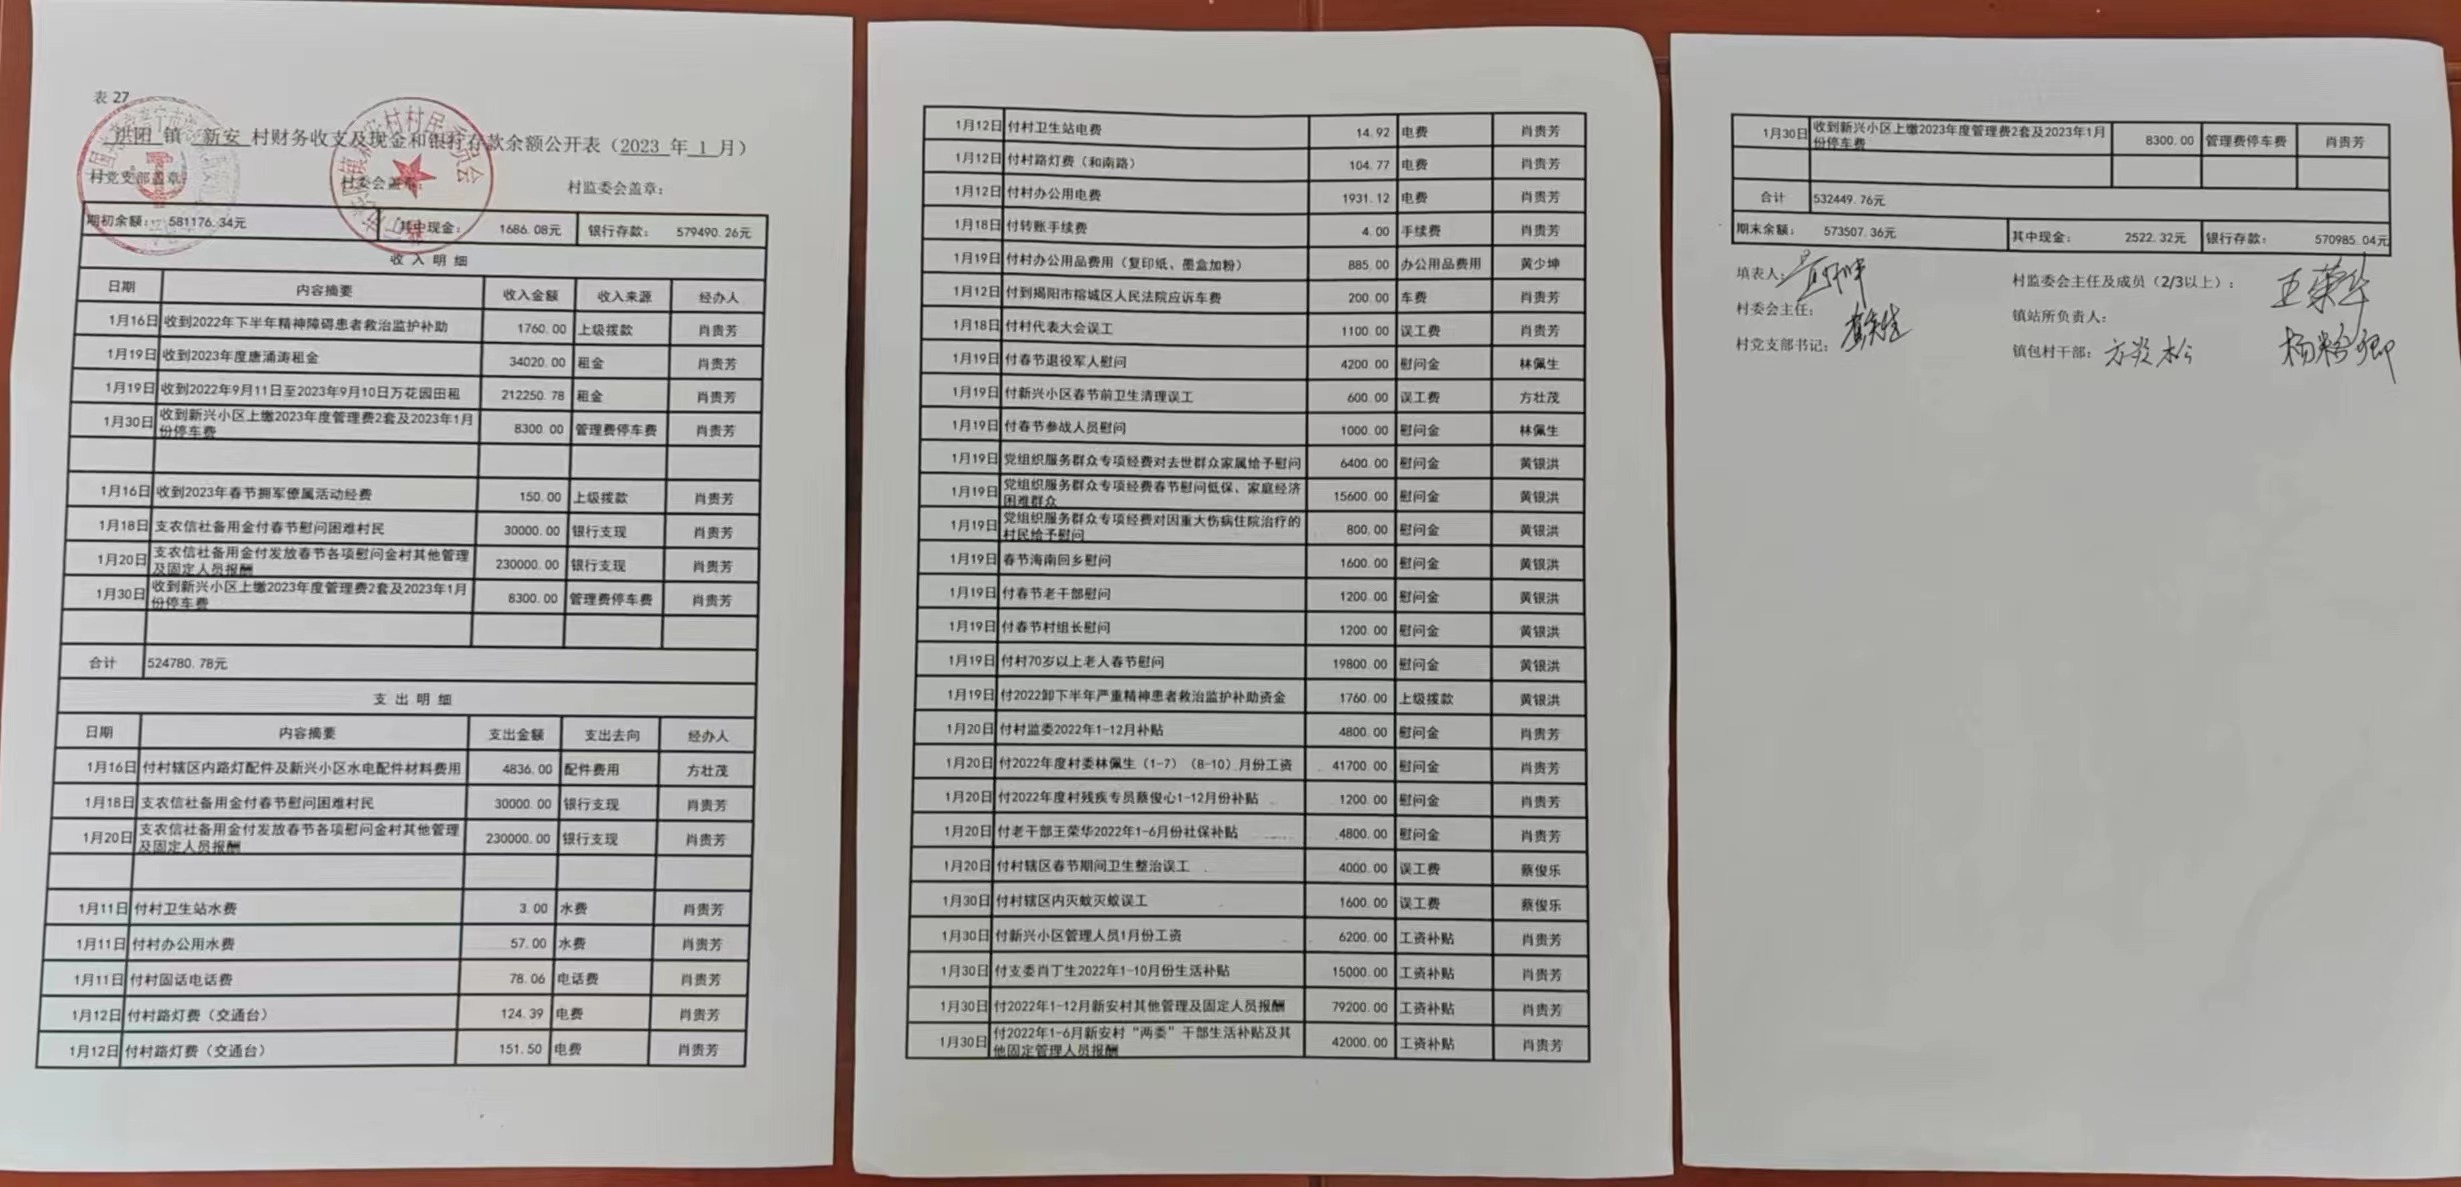 表 27
洪阳 镇 新安 村财务收支及现金和银行存款余额公开表（2023 年 1 月）
村党支部盖章： 村委会盖章： 村监委会盖章：
期初余额： 581176.34元 其中现金： 1686.08元 银行存款： 579490.26元
收 入 明 细
日期 内容摘要 收入金额 收入来源 经办人
1月16日 收到2022年下半年精神障碍患者救治监护补助 1760.00 上级拨款 肖贵芳
1月19日 收到2023年度唐涌涛租金 34020.00 租金 肖贵芳
1月19日 收到2022年9月11日至2023年9月10日万花园田租 212250.78 租金 肖贵芳
1月30日 收到新兴小区上缴2023年度管理费2套及2023年1月份停车费 8300.00 管理费停车费 肖贵芳
1月16日 收到2023年春节拥军僚属活动经费 150.00 上级拨款 肖贵芳
1月18日 支农信社备用金付春节慰问困难村民 30000.00 银行支现 肖贵芳
1月20日 支农信社备用金付发放春节各项慰问金村其他管理及固定人员报酬 230000.00 银行支现 肖贵芳
1月30日 收到新兴小区上缴2023年度管理费2套及2023年1月份停车费 8300.00 管理费停车费 肖贵芳
合计 524780.78元
支 出 明 细
日期 内容摘要 支出金额 支出去向 经办人
1月16日 付村辖区内路灯配件及新兴小区水电配件材料费用 4836.00 配件费用 方壮茂
1月18日 支农信社备用金付春节慰问困难村民 30000.00 银行支现 肖贵芳
1月20日 支农信社备用金付发放春节各项慰问金村其他管理及固定人员报酬 230000.00 银行支现 肖贵芳
1月11日 付村卫生站水费 3.00 水费 肖贵芳
1月11日 付村办公用水费 57.00 水费 肖贵芳
1月11日 付村固话电话费 78.06 电话费 肖贵芳
1月12日 付村路灯费（交通台） 124.39 电费 肖贵芳
1月12日 付村路灯费（交通台） 151.50 电费 肖贵芳
1月12日 付村卫生站电费 14.92 电费 肖贵芳
1月12日 付村路灯费（和南路） 104.77 电费 肖贵芳
1月12日 付村办公用电费 1931.12 电费 肖贵芳
1月18日 付转账手续费 4.00 手续费 肖贵芳
1月19日 付村办公用品费用（复印纸、墨盒加粉） 885.00 办公用品费用 黄少坤
1月12日 付到揭阳市榕城区人民法院应诉车费 200.00 车费 肖贵芳
1月18日 付村代表大会误工 1100.00 误工费 肖贵芳
1月19日 付春节退役军人慰问 4200.00 慰问金 林佩生
1月19日 付新兴小区春节前卫生清理误工 600.00 误工费 方壮茂
1月19日 付春节参战人员慰问 1000.00 慰问金 林佩生
1月19日 党组织服务群众专项经费对去世群众家属给予慰问 6400.00 慰问金 黄银洪
1月19日 党组织服务群众专项经费春节慰问低保、家庭经济困难群众 15600.00 慰问金 黄银洪
1月19日 党组织服务群众专项经费对因重大伤病住院治疗的村民给予慰问 800.00 慰问金 黄银洪
1月19日 春节海南回乡慰问 1600.00 慰问金 黄银洪
1月19日 付春节老干部慰问 1200.00 慰问金 黄银洪
1月19日 付春节村组长慰问 1200.00 慰问金 黄银洪
1月19日 付村70岁以上老人春节慰问 19800.00 慰问金 黄银洪
1月19日 付2022卸下半年严重精神患者救治监护补助资金 1760.00 上级拨款 黄银洪
1月20日 付村监委2022年1-12月补贴 4800.00 慰问金 肖贵芳
1月20日 付2022年度村委林佩生（1-7）（8-10）月份工资 41700.00 慰问金 肖贵芳
1月20日 付2022年度村残疾专员蔡俊心1-12月份补贴 1200.00 慰问金 肖贵芳
1月20日 付老干部王荣华2022年1-6月份社保补贴 4800.00 慰问金 肖贵芳
1月20日 付村辖区春节期间卫生整治误工 4000.00 误工费 蔡俊乐
1月30日 付村辖区内灭蚊灭蚁误工 1600.00 误工费 蔡俊乐
1月30日 付新兴小区管理人员1月份工资 6200.00 工资补贴 肖贵芳
1月30日 付支委肖丁生2022年1-10月份生活补贴 15000.00 工资补贴 肖贵芳
1月30日 付2022年1-12月新安村其他管理及固定人员报酬 79200.00 工资补贴 肖贵芳
1月30日 付2022年1-6月新安村“两委”干部生活补贴及其他固定管理人员报酬 42000.00 工资补贴 肖贵芳
1月30日 收到新兴小区上缴2023年度管理费2套及2023年1月份停车费 8300.00 管理费停车费 肖贵芳
合计 532449.76元
期末余额： 573507.36元 其中现金： 2522.32元 银行存款： 570985.04元
填表人： 村监委会主任及成员（2/3以上）： 王荣华
村委会主任： 镇站所负责人：
村党支部书记： 镇包村干部：